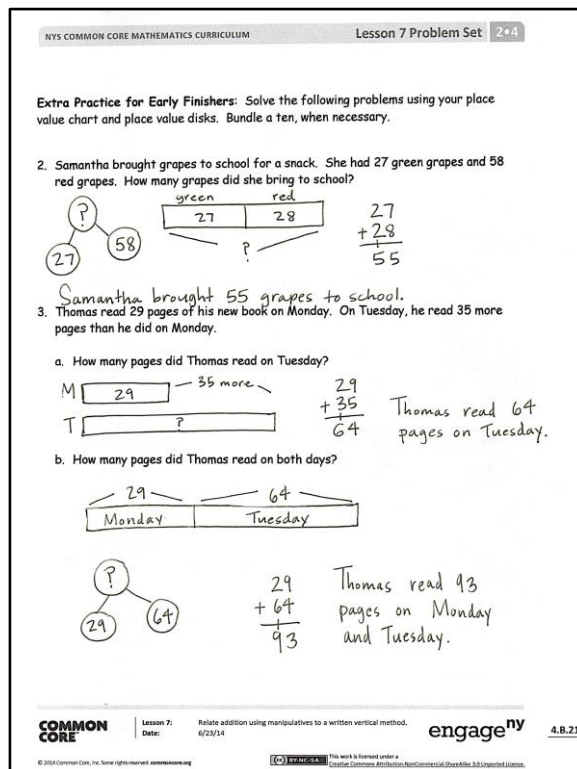 NYS COMMON CORE MATHEMATICS CURRICULUM Lesson 7 Problem Set 2•4
Extra Practice for Early Finishers: Solve the following problems using your place
value chart and place value disks. Bundle a ten, when necessary.
2. Samantha brought grapes to school for a snack. She had 27 green grapes and 58
red grapes. How many grapes did she bring to school?
? 27 58
green red
27 28
?
27
+ 28
55
Samantha brought 55 grapes to school.
3. Thomas read 29 pages of his new book on Monday. On Tuesday, he read 35 more
pages than he did on Monday.
a. How many pages did Thomas read on Tuesday?
M 29 35 more
T ?
29
+ 35
64
Thomas read 64
pages on Tuesday.
b. How many pages did Thomas read on both days?
29 64
Monday Tuesday
?
29 64
29
+ 64
93
Thomas read 93
pages on Monday
and Tuesday.
COMMON
CORE™
Lesson 7: Relate addition using manipulatives to a written vertical method.
Date: 6/23/14
engage ny
4.B.21
© 2014 Common Core, Inc. Some rights reserved. commoncore.org
CC BY-NC-SA
This work is licensed under a
Creative Commons Attribution-NonCommercial-ShareAlike 3.0 Unported License.